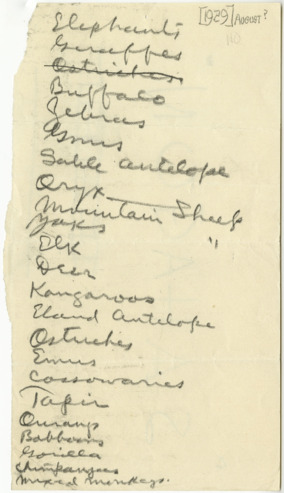 [1929] AUGUST?
Elephants
Giraffes
Ostriches
Buffalo
Zebras
Gnus
Sable antelope
Oryx
Mountain Sheep
Yaks "
Elk
Deer
Kangaroos
Eland Antelope
Ostriches
Emus
Cassowaries
Tapir
Ourangs
Babboons
Gorilla
Chimpanzees
Mixed monkeys.